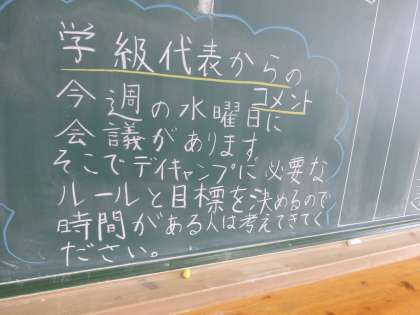 学級代表からの
コメント
今週の水曜日に
会議があります
そこでデイキャンプに必要な
ルールと目標を決めるので
時間がある人は考えてきてく
ださい。